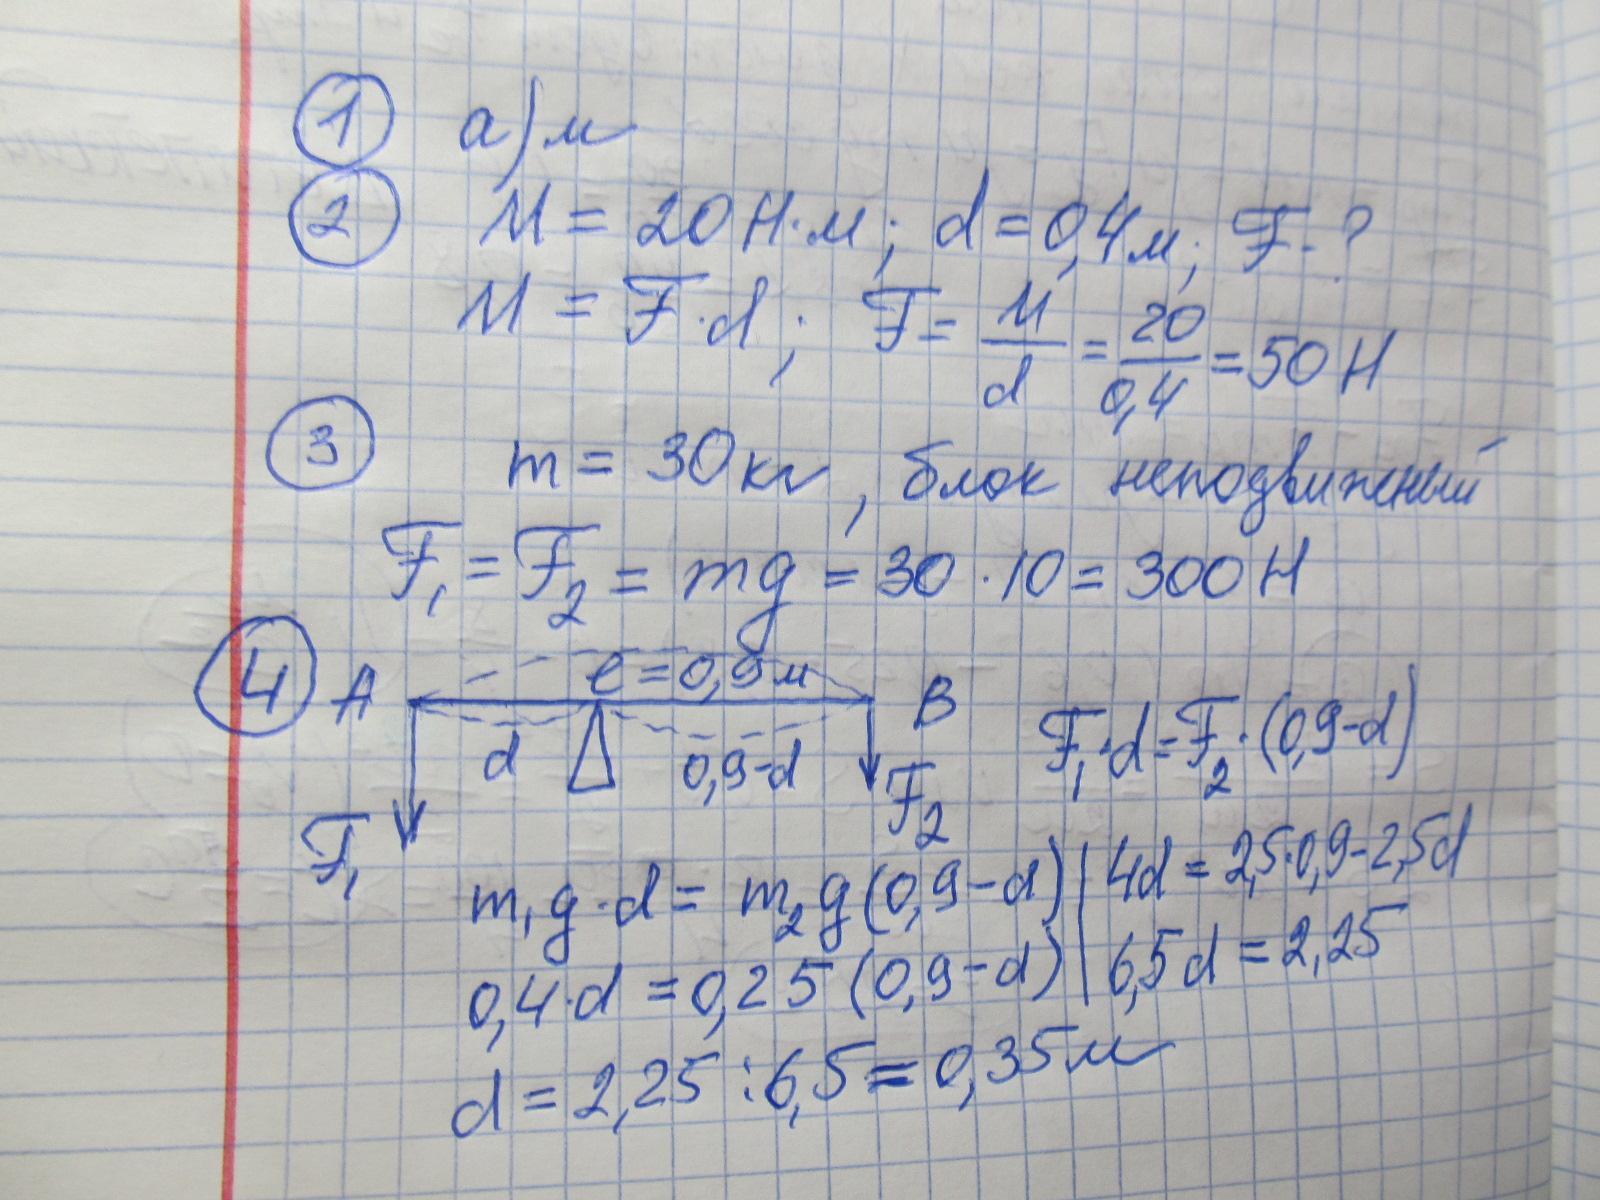 1 а) м
2 M = 20 Н·м; d = 0,4 м; F - ?
M = F·d; F = M/d = 20/0,4 = 50 Н
3 m = 30 кг, блок неподвижный
F₁ = F₂ = mg = 30·10 = 300 Н
4 A ℓ = 0,9 м B
d 0,9-d F₁·d = F₂·(0,9-d)
F₁ F₂
m₁g·d = m₂g(0,9-d) | 4d = 2,5·0,9-2,5d
0,4·d = 0,25(0,9-d) | 6,5d = 2,25
d = 2,25 : 6,5 = 0,35 м